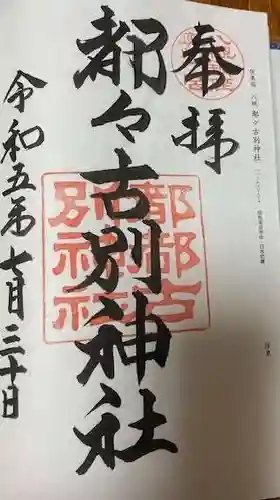 奉拝
都々古別神社
都都古
別神社
令和五年七月三十日